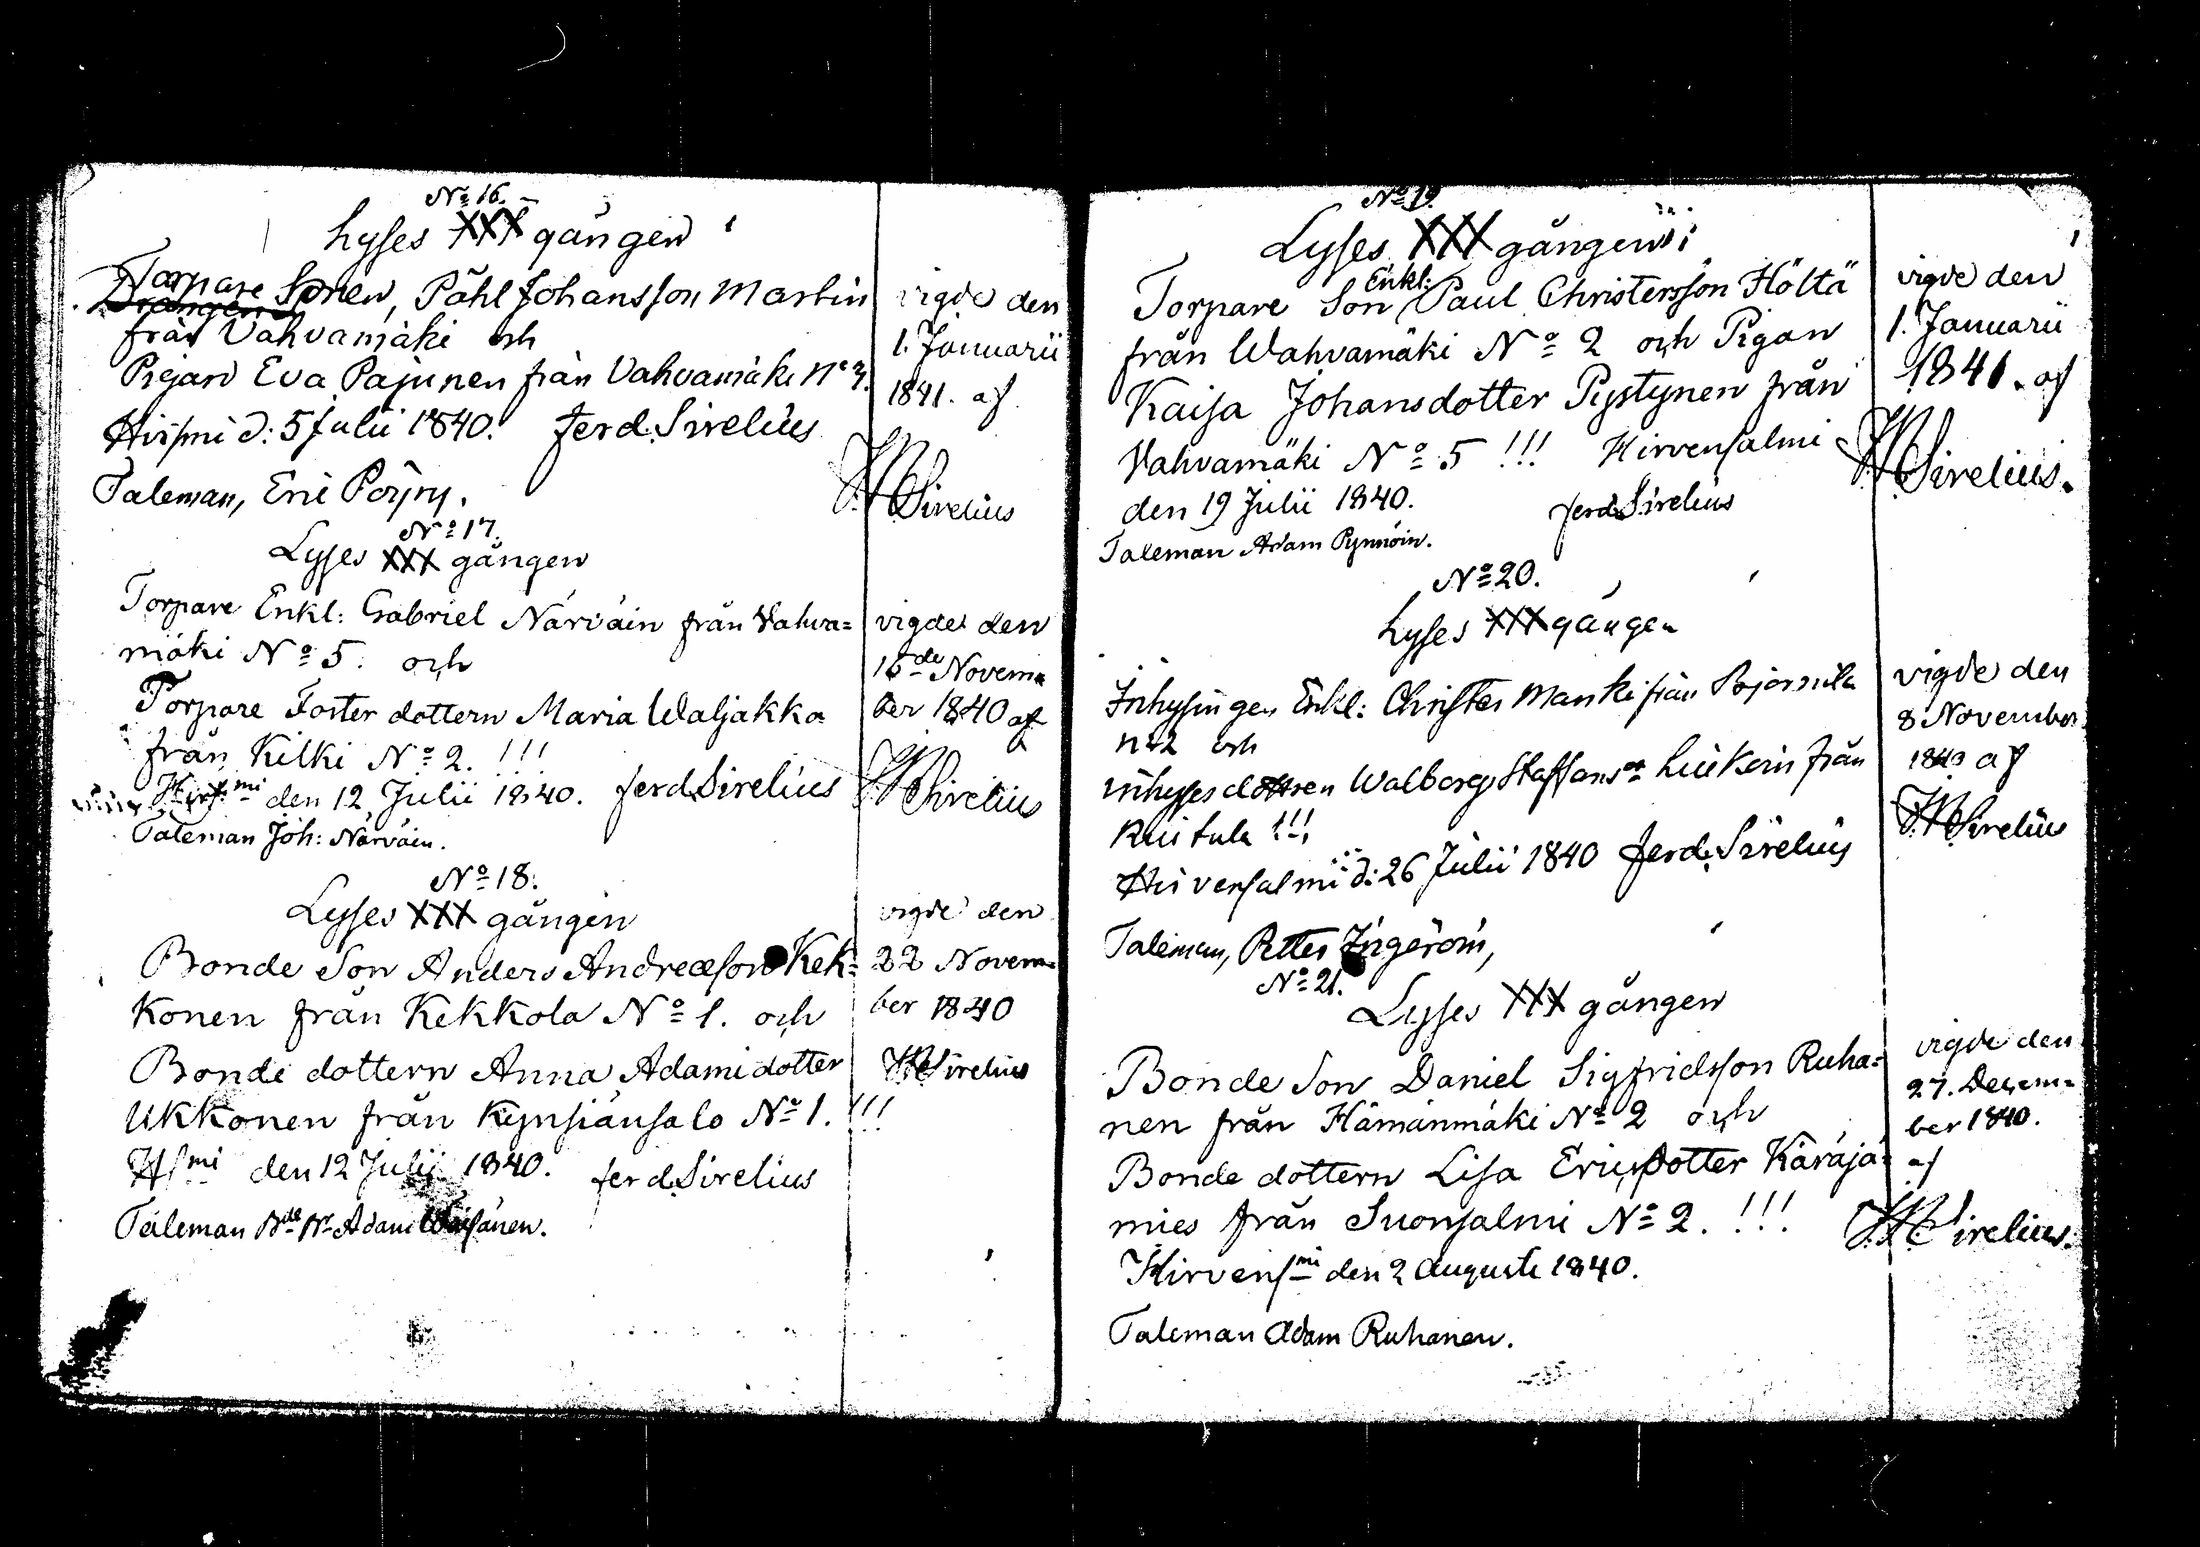 No 16.
Lyses XXX gången
Torpare Sonen, Påhl Johansson Martin
Drängen
från Vahvamäki och
Pigan Eva Pajunen från Vahvamäki No 3.
Hirfmi d: 5 Julii 1840. Ferd. Sirelius
Taleman, Eric Pöyry.
vigde den
1. Januarii
1841. af
Sirelius
No 17.
Lyses XXX gången
Torpare Enkl: Gabriel Närväin från Vahva=
mäki No 5. och
Torpare Foster dottern Maria Waljakka
från Kilki No 2. !!!
Hirf.mi den 12 Julii 1840. Ferd. Sirelius
Taleman Joh: Närväin.
vigde den
15de Novem=
ber 1840 af
Sirelius
No 18.
Lyses XXX gången
Bonde Son Anders Andreæson Kek=
konen från Kekkola No 1. och
Bonde dottern Anna Adamidotter
Ukkonen från Kynsiänsalo No 1. !!!
Hfmi den 12 Julii 1840. Ferd. Sirelius
Taleman Adam Väisänen.
vigde den
22 Novem=
ber 1840
Sirelius
No 19.
Lyses XXX gången
Torpare Son Enkl: Paul Christersson Hölttä
från Wahvamäki No 2 och Pigan
Kaisa Johansdotter Pystynen från
Vahvamäki No 5 !!! Hirvensalmi
den 19 Julii 1840. Ferd. Sirelius
Taleman Adam Pynnöin.
vigde den
1. Januarii
1841. af
Sirelius.
No 20.
Lyses XXX gången
Inhysingen Enkl: Christer Manki från
n:2 och
inhysesdottren Walborg Staffansdr Liukoin från
!!!
Hirvensalmi d: 26 Julii 1840 Ferd. Sirelius
Taleman, Petter Ingeröin,
vigde den
8 November
1840 af
Sirelius
No 21.
Lyses XXX gången
Bonde Son Daniel Sigfridsson Ruha=
nen från Hämänmäki No 2 och
Bonde dottern Lisa Ericsdotter Käräjä=
mies från Suonsalmi No 2. !!!
Hirvensmi den 2 Augusti 1840.
Taleman Adam Ruhanen.
vigde den
27. Decem=
ber 1840.
af
Sirelius.